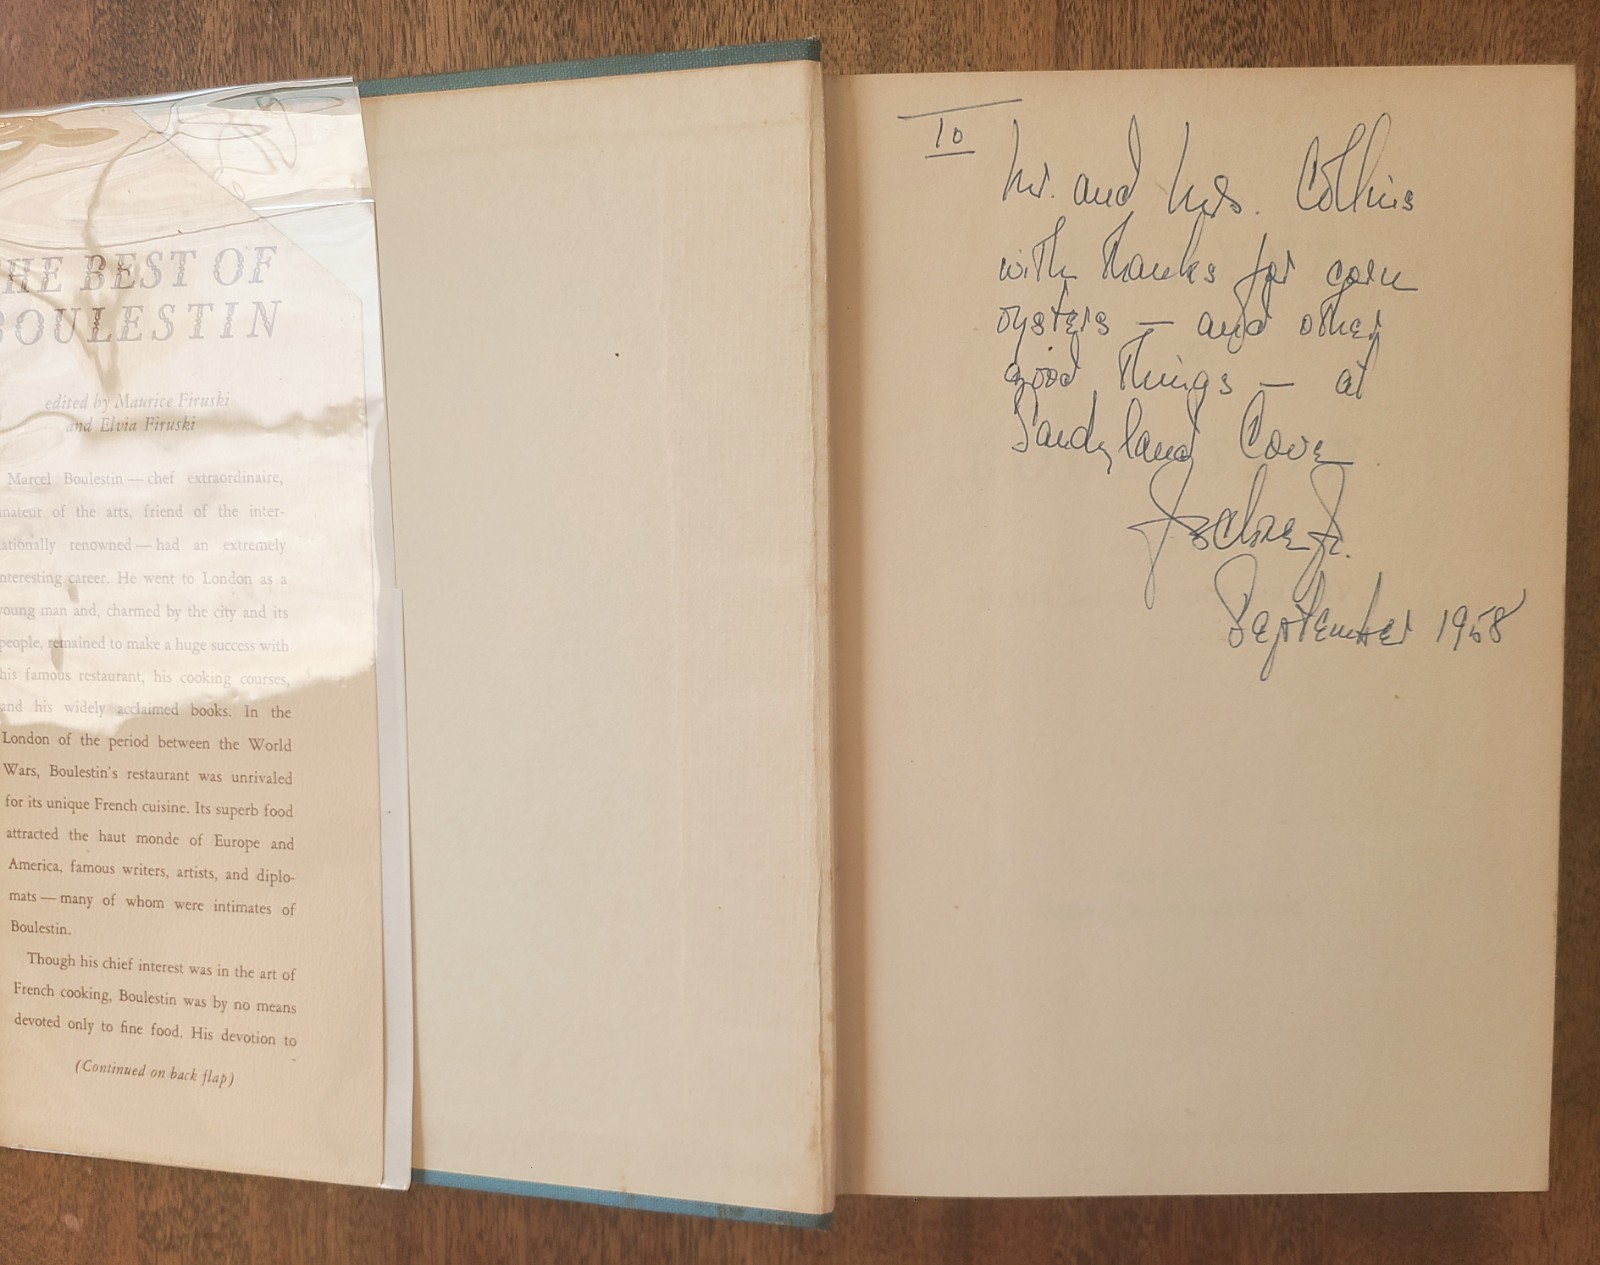 HE BEST OF
BOULESTIN
edited by Maurice Firuski
and Elvia Firuski
Marcel Boulestin — chef extraordinaire,
mateur of the arts, friend of the inter-
ationally renowned — had an extremely
nteresting career. He went to London as a
young man and, charmed by the city and its
people, remained to make a huge success with
his famous restaurant, his cooking courses,
and his widely acclaimed books. In the
London of the period between the World
Wars, Boulestin's restaurant was unrivaled
for its unique French cuisine. Its superb food
attracted the haut monde of Europe and
America, famous writers, artists, and diplo-
mats — many of whom were intimates of
Boulestin.
Though his chief interest was in the art of
French cooking, Boulestin was by no means
devoted only to fine food. His devotion to
(Continued on back flap)
To
Mr. and Mrs. Collins
with thanks for corn
oysters — and other
good things — at
Sandyland Cove
September 1958